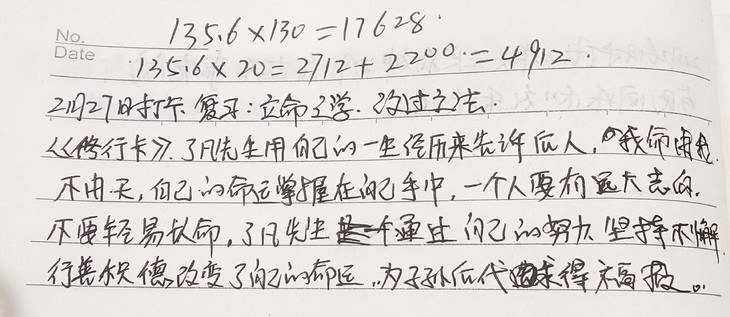 135.6×130=17628.
No.
Date
135.6×20=2712+2200.=4912.
2月27日打卡 复习:立命之学.改过之法.
《修行卡》.了凡先生用自己的一生经历来告许后人,"我命由我.
不由天,自己的命运掌握在自己手中,一个人要有远大志向.
不要轻易认命,了凡先生通过自己的努力 坚持不懈
行善积德改变了自己的命运,为子孙后代求得福报。